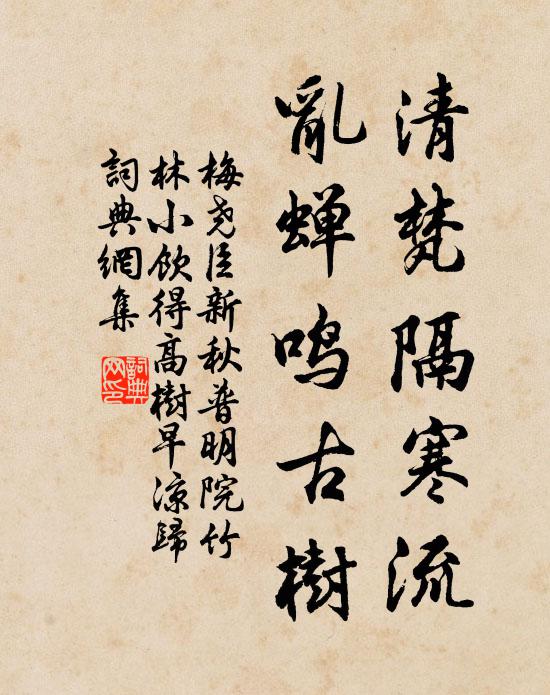 清梵隔寒流
亂蝉鸣古樹
梅尧臣新秋普明院竹
林小飲得高樹早凉歸
詞典網集
詞典
网印